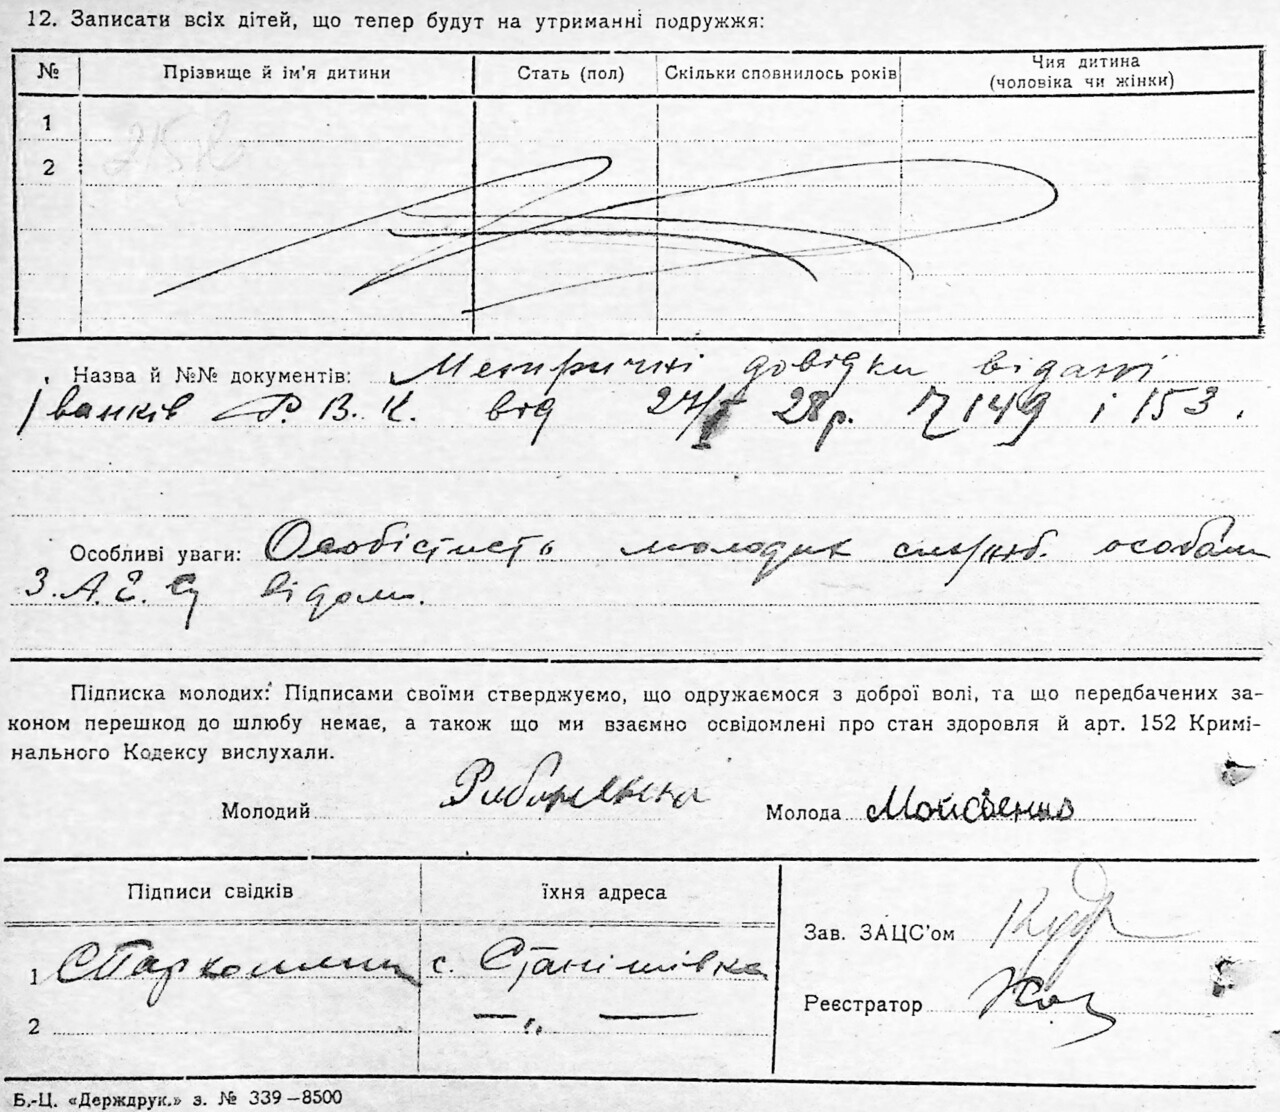 12. Записати всіх дітей, що тепер будут на утриманні подружжя:
№ Прізвище й ім'я дитини Стать (пол) Скільки сповнилось років Чия дитина (чоловіка чи жінки)
1
2
Назва й №№ документів: Метричні довідки видані
Іванків Р. В. К. від 27/ 28р. 149 і 153.
Особливі уваги: Особістість молодих служб. особам
З. А. Г. Су відомі.
Підписка молодих: Підписами своїми стверджуємо, що одружаємося з доброї волі, та що передбачених за-
коном перешкод до шлюбу немає, а також що ми взаємно освідомлені про стан здоровля й арт. 152 Кримі-
нального Кодексу вислухали.
Молодий Молода Мойсієнко
Підписи свідків їхня адреса
Зав. ЗАЦС'ом
1 с. Станішівка
Реєстратор
2 — „ —
Б.-Ц. «Держдрук.» з. № 339—8500